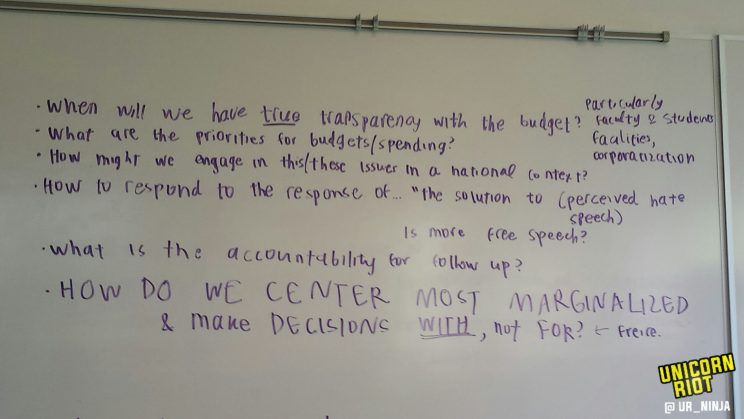 · When will we have true transparency with the budget?
particularly
faculty & students
facilities,
corporatization
· What are the priorities for budgets/spending?
· How might we engage in this/these issues in a national context?
· How to respond to the response of... "the solution to (perceived hate
speech)
is more free speech?
· What is the accountability for follow up?
· HOW DO WE CENTER MOST MARGINALIZED
& make DECISIONS WITH, not FOR? ← Freire.
UNICORN
RIOT
@UR_NINJA